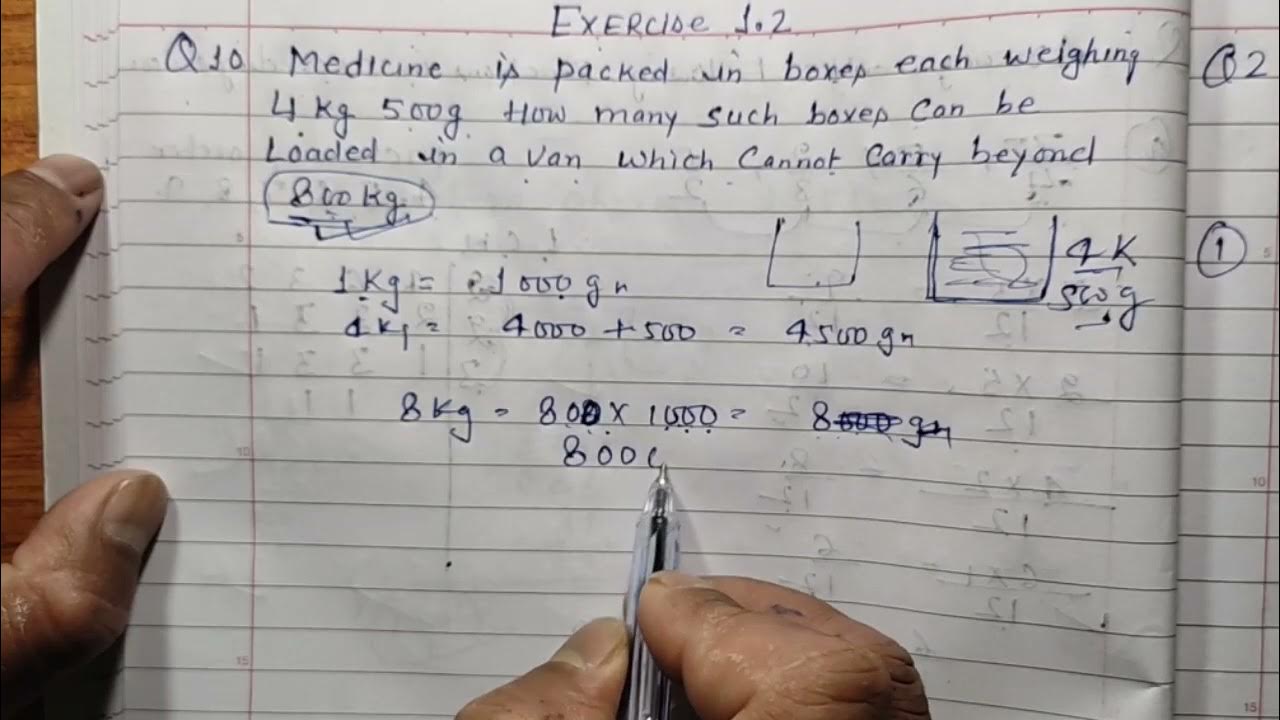 EXERCISE 1.2
Q10 Medicine is packed in boxes each weighing
4 kg 500g How many such boxes can be
Loaded in a van which cannot carry beyond
800 kg.
4 K
500 g
1 Kg = 1000 gn
4 kg = 4000 + 500 = 4500 gn
8 Kg = 800 X 1000 = 8000 gn
8000
Q2
1
5
10
15
5
10
15